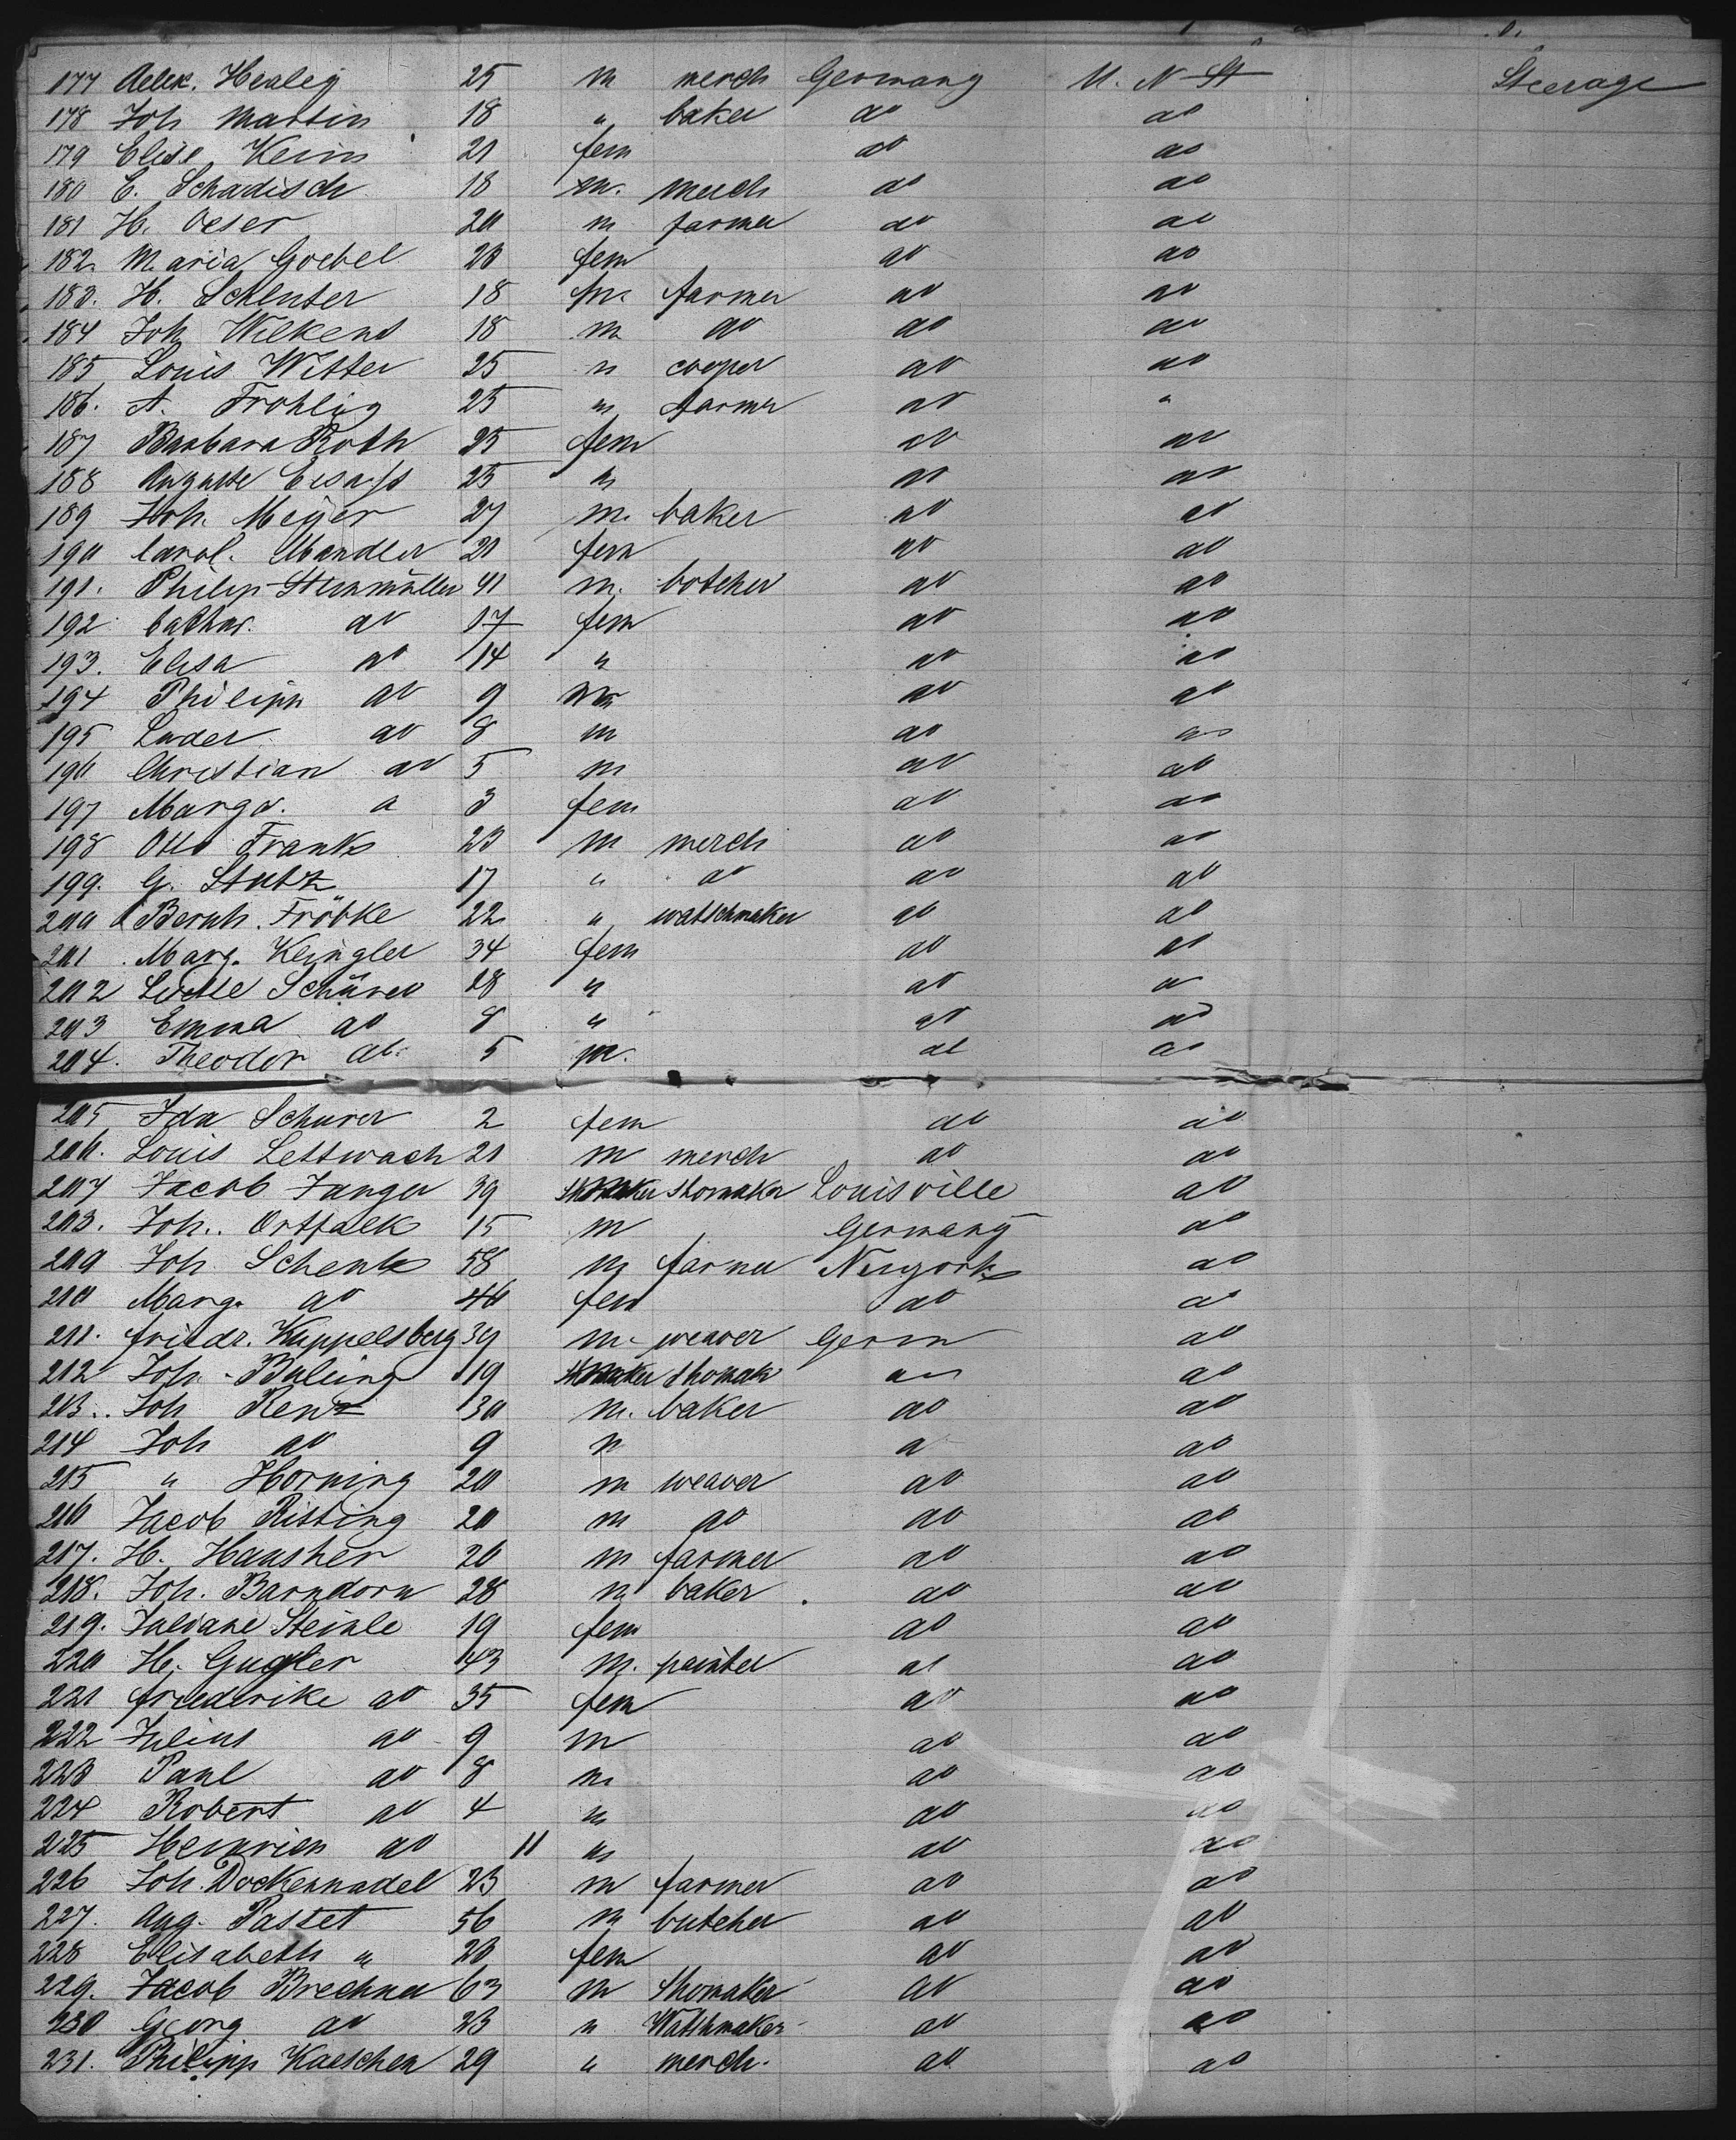 177 Aelex. Healey 25 m merch Germany U. N St Steerage
178 Joh Martin 18 " baker do do
179 Elise Keim 21 fem do do
180 E. Schadisch 18 m. merch do do
181 H. Oeser 20 m farmer do do
182. Maria Goebel 20 fem do do
183. H. Schluter 18 m. farmer do do
184 Joh Wilkens 18 m do do do
185 Louis Witter 25 m cooper do do
186. A. Frohlig 25 m farmer do "
187 Barbara Roth 25 fem do do
188 Auguste 25 " do do
189 Joh. Meyer 27 m. baker do do
190 Carol. Mandler 21 fem do do
191. Philip Steinmüller 41 m. botcher do do
192 Cathar. do 17 fem do do
193. Elisa do 14 " do do
194 Philipp do 9 m do do
195 Luder do 8 m do do
196 Christian do 5 m do do
197 Margr. a 3 fem do do
198 Otto Frank 23 m merch do do
199. G. Stutz 17 " do do do
200 Bernh. Fröbke 22 " watschmaker do do
201 Marg. Klingler 34 fem do do
202 Schürer 28 " do do
203 Emma do 8 " do do
204. Theodor do. 5 m. do do
205 Ida Schurer 2 fem do do
206. Louis Lettwach 21 m merch do do
207 Jacob Zanger 39 shomaker Louisville do
208. Joh. Ortfalk 15 m Germany do
209 Joh Schenk 58 m farmer Newyork do
210 Marg. do 46 fem do do
211. Friedr. Kuppelsberg 39 m. weaver Germ do
212 Joh Buling 19 shomak do do
213. Joh Renz 30 m. baker do do
214 Joh do 9 m a do
215 " Horning 20 m weaver do do
216 Jacob Risting 20 m do do do
217. H. Hausher 20 m farmer do do
218. Joh. Barndorn 28 m baker do do
219. Juliane Steinle 19 fem do do
220 H. Gugler 43 m. painter do do
221 Friederike do 35 fem do do
222 Julius do 9 m do do
223 Paul do 8 m do do
224 Robert do 4 m do do
225 Heinrich do 11 m do do
226 Joh. Dockennadel 23 m farmer do do
227. Aug. Passet 56 m butcher do do
228 Elisabeth " 20 fem do do
229. Jacob Brechner 63 m shomaker do do
230 Georg do 23 m Watshmaker do do
231. Philipp Kaeschen 29 " merch. do do